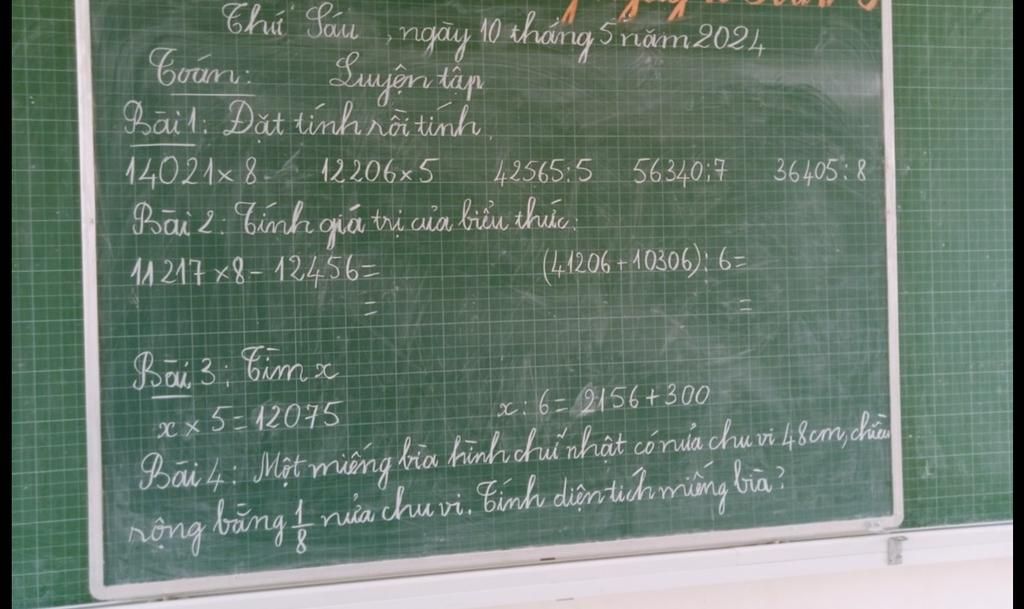 Thứ Sáu, ngày 10 tháng 5 năm 2024
Toán: Luyện tập
Bài 1: Đặt tính rồi tính.
14021 x 8 12206 x 5 42565 : 5 56340 : 7 36405 : 8
Bài 2: Tính giá trị của biểu thức:
11217 x 8 - 12456 = (41206 + 10306) : 6 =
= =
Bài 3: Tìm x
x x 5 = 12075 x : 6 = 2156 + 300
Bài 4: Một miếng bìa hình chữ nhật có nửa chu vi 48cm, chiều
rộng bằng 1/8 nửa chu vi. Tính diện tích miếng bìa?